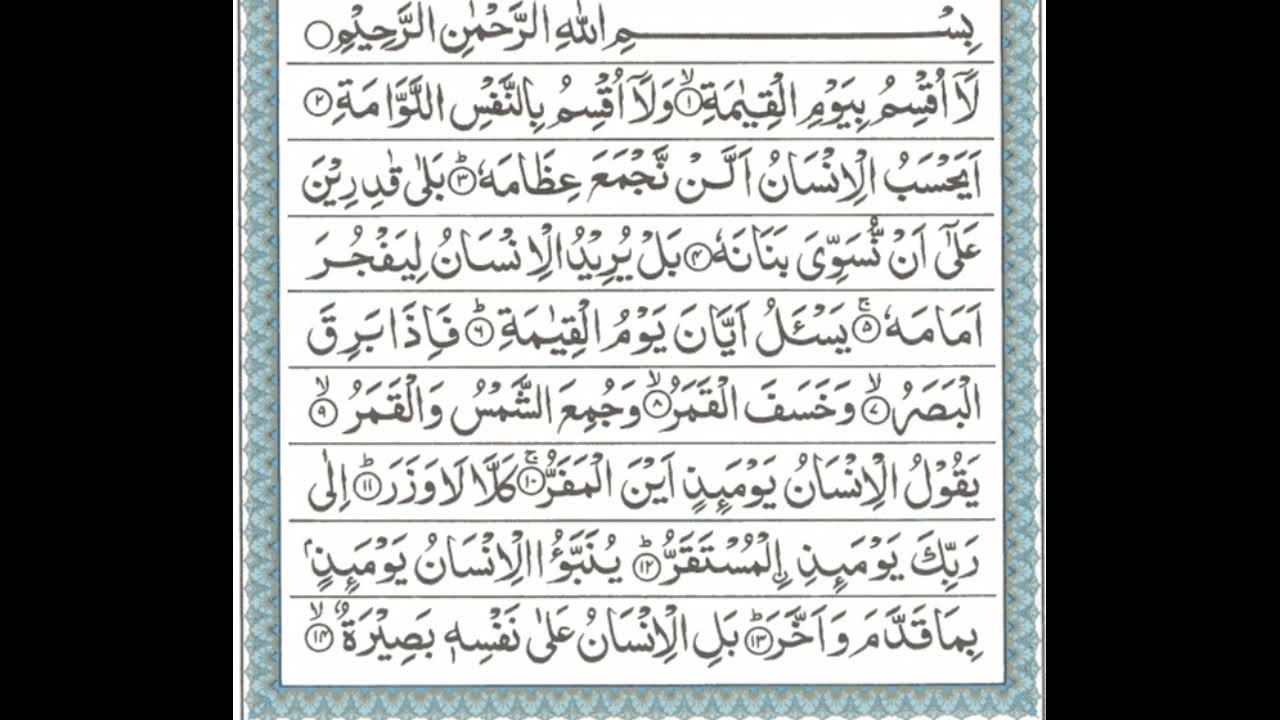 بِسْــــــــمِ اللهِ الرَّحْمٰنِ الرَّحِيْمِ ○
لَاۤ اُقْسِمُ بِيَوْمِ الْقِيٰمَةِ ۙ﴿۱﴾ وَلَاۤ اُقْسِمُ بِالنَّفْسِ اللَّوَّامَةِ ﴿۲﴾
اَيَحْسَبُ الْاِنْسَانُ اَلَّنْ نَّجْمَعَ عِظَامَهٗ ؕ﴿۳﴾ بَلٰى قٰدِرِيْنَ
عَلٰۤى اَنْ نُّسَوِّىَ بَنَانَهٗ ﴿۴﴾ بَلْ يُرِيْدُ الْاِنْسَانُ لِيَفْجُرَ
اَمَامَهٗ ۚ﴿۵﴾ يَسْـَٔلُ اَيَّانَ يَوْمُ الْقِيٰمَةِ ؕ﴿۶﴾ فَاِذَا بَرِقَ
الْبَصَرُ ۙ﴿۷﴾ وَخَسَفَ الْقَمَرُ ۙ﴿۸﴾ وَجُمِعَ الشَّمْسُ وَالْقَمَرُ ۙ﴿۹﴾
يَقُوْلُ الْاِنْسَانُ يَوْمَئِذٍ اَيْنَ الْمَفَرُّ ۚ﴿۱۰﴾ كَلَّا لَا وَزَرَ ؕ﴿۱۱﴾ اِلٰى
رَبِّكَ يَوْمَئِذِ اۨلْمُسْتَقَرُّ ؕ﴿۱۲﴾ يُنَبَّؤُا الْاِنْسَانُ يَوْمَئِذٍۭ
بِمَا قَدَّمَ وَاَخَّرَ ؕ﴿۱۳﴾ بَلِ الْاِنْسَانُ عَلٰى نَفْسِهٖ بَصِيْرَةٌ ۙ﴿۱۴﴾